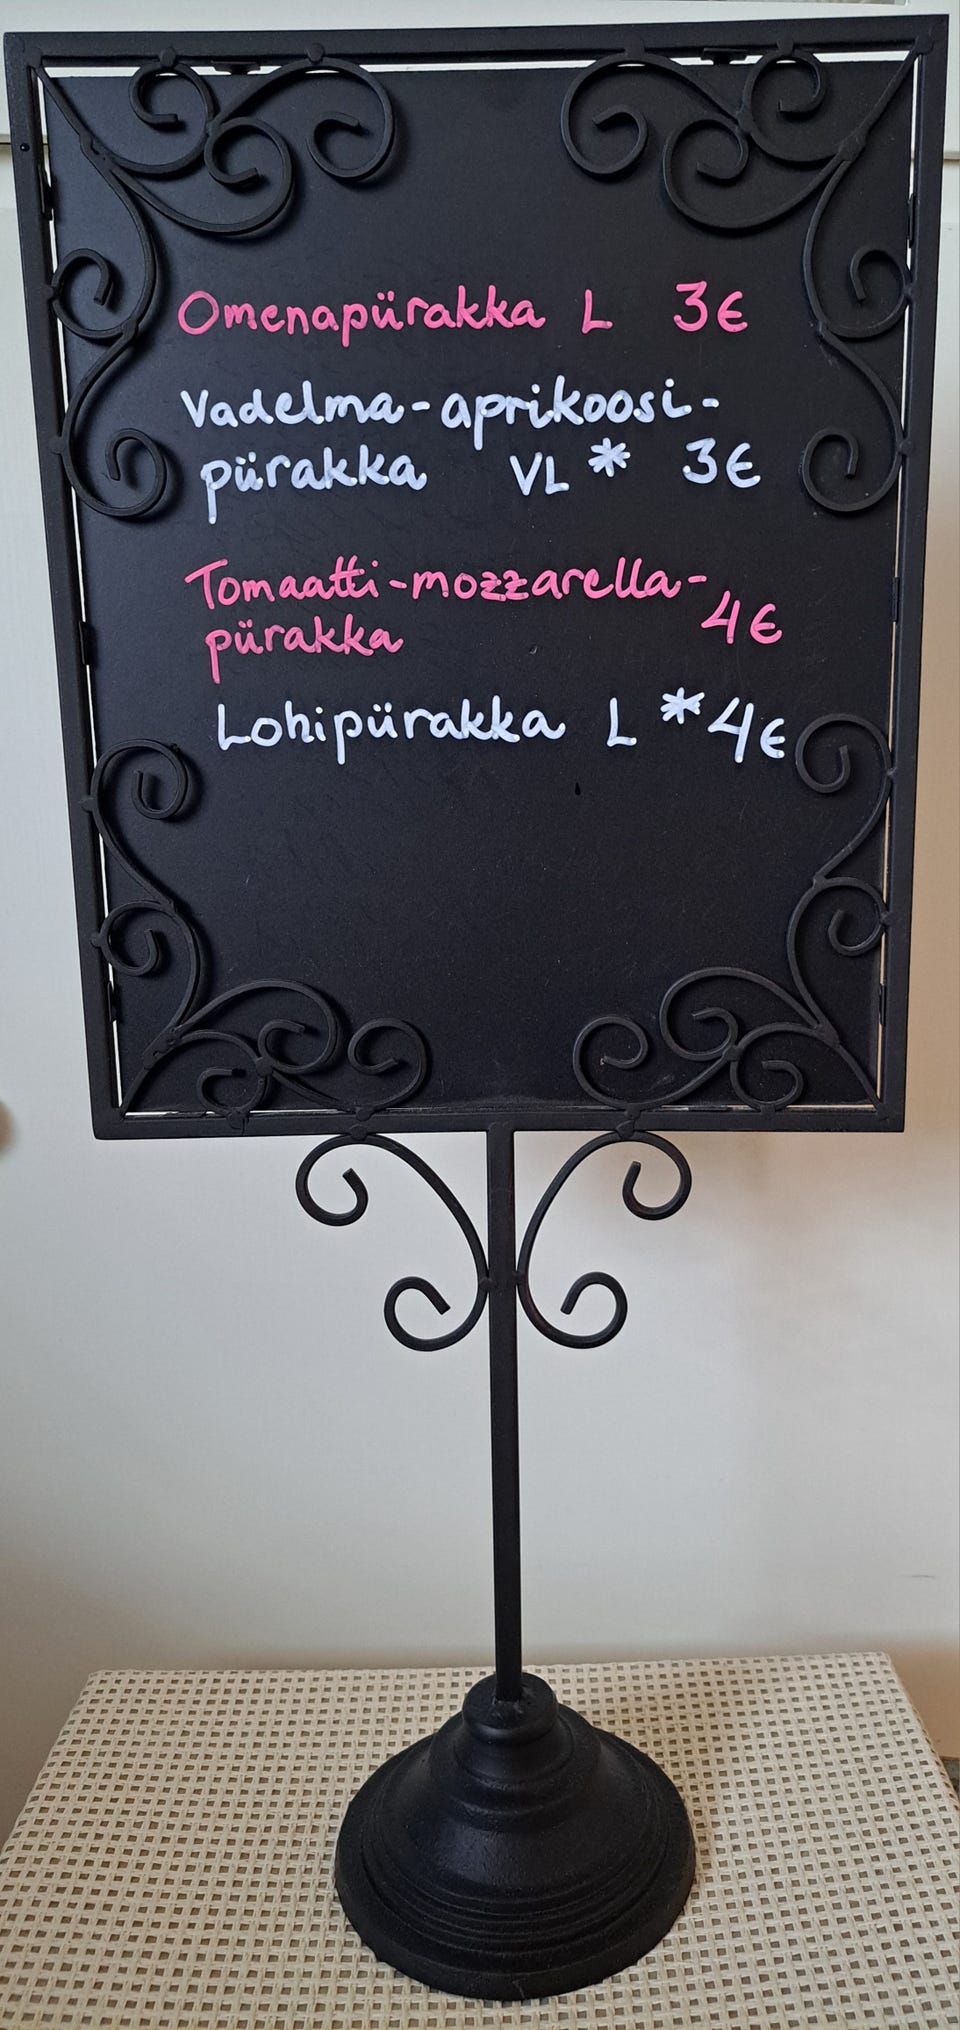 Omenapiirakka L 3€
Vadelma-aprikoosi-
piirakka VL * 3€
Tomaatti-mozzarella-
piirakka 4€
Lohipiirakka L * 4€